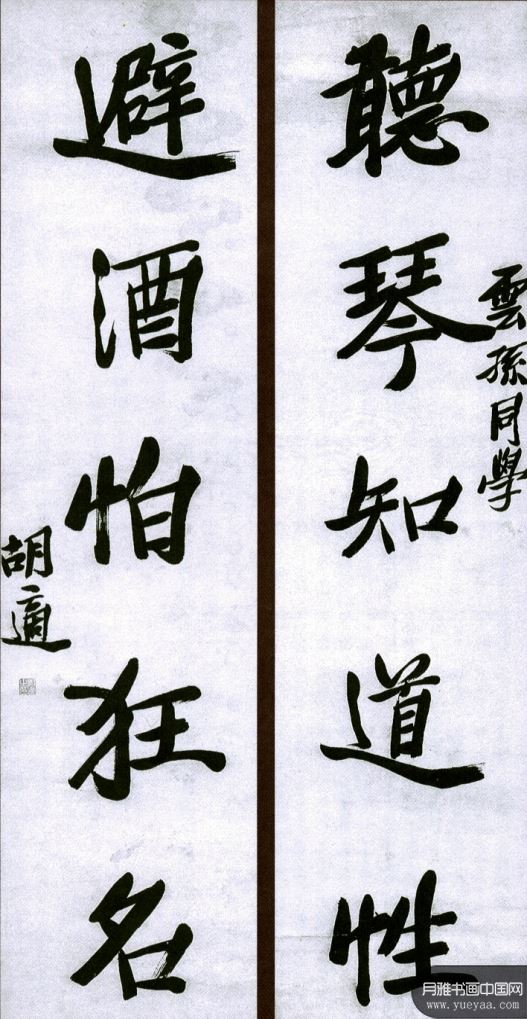 雲孫同學
聽琴知道性
避酒怕狂名
胡適
月雅书画中国网
www.yueyaa.com